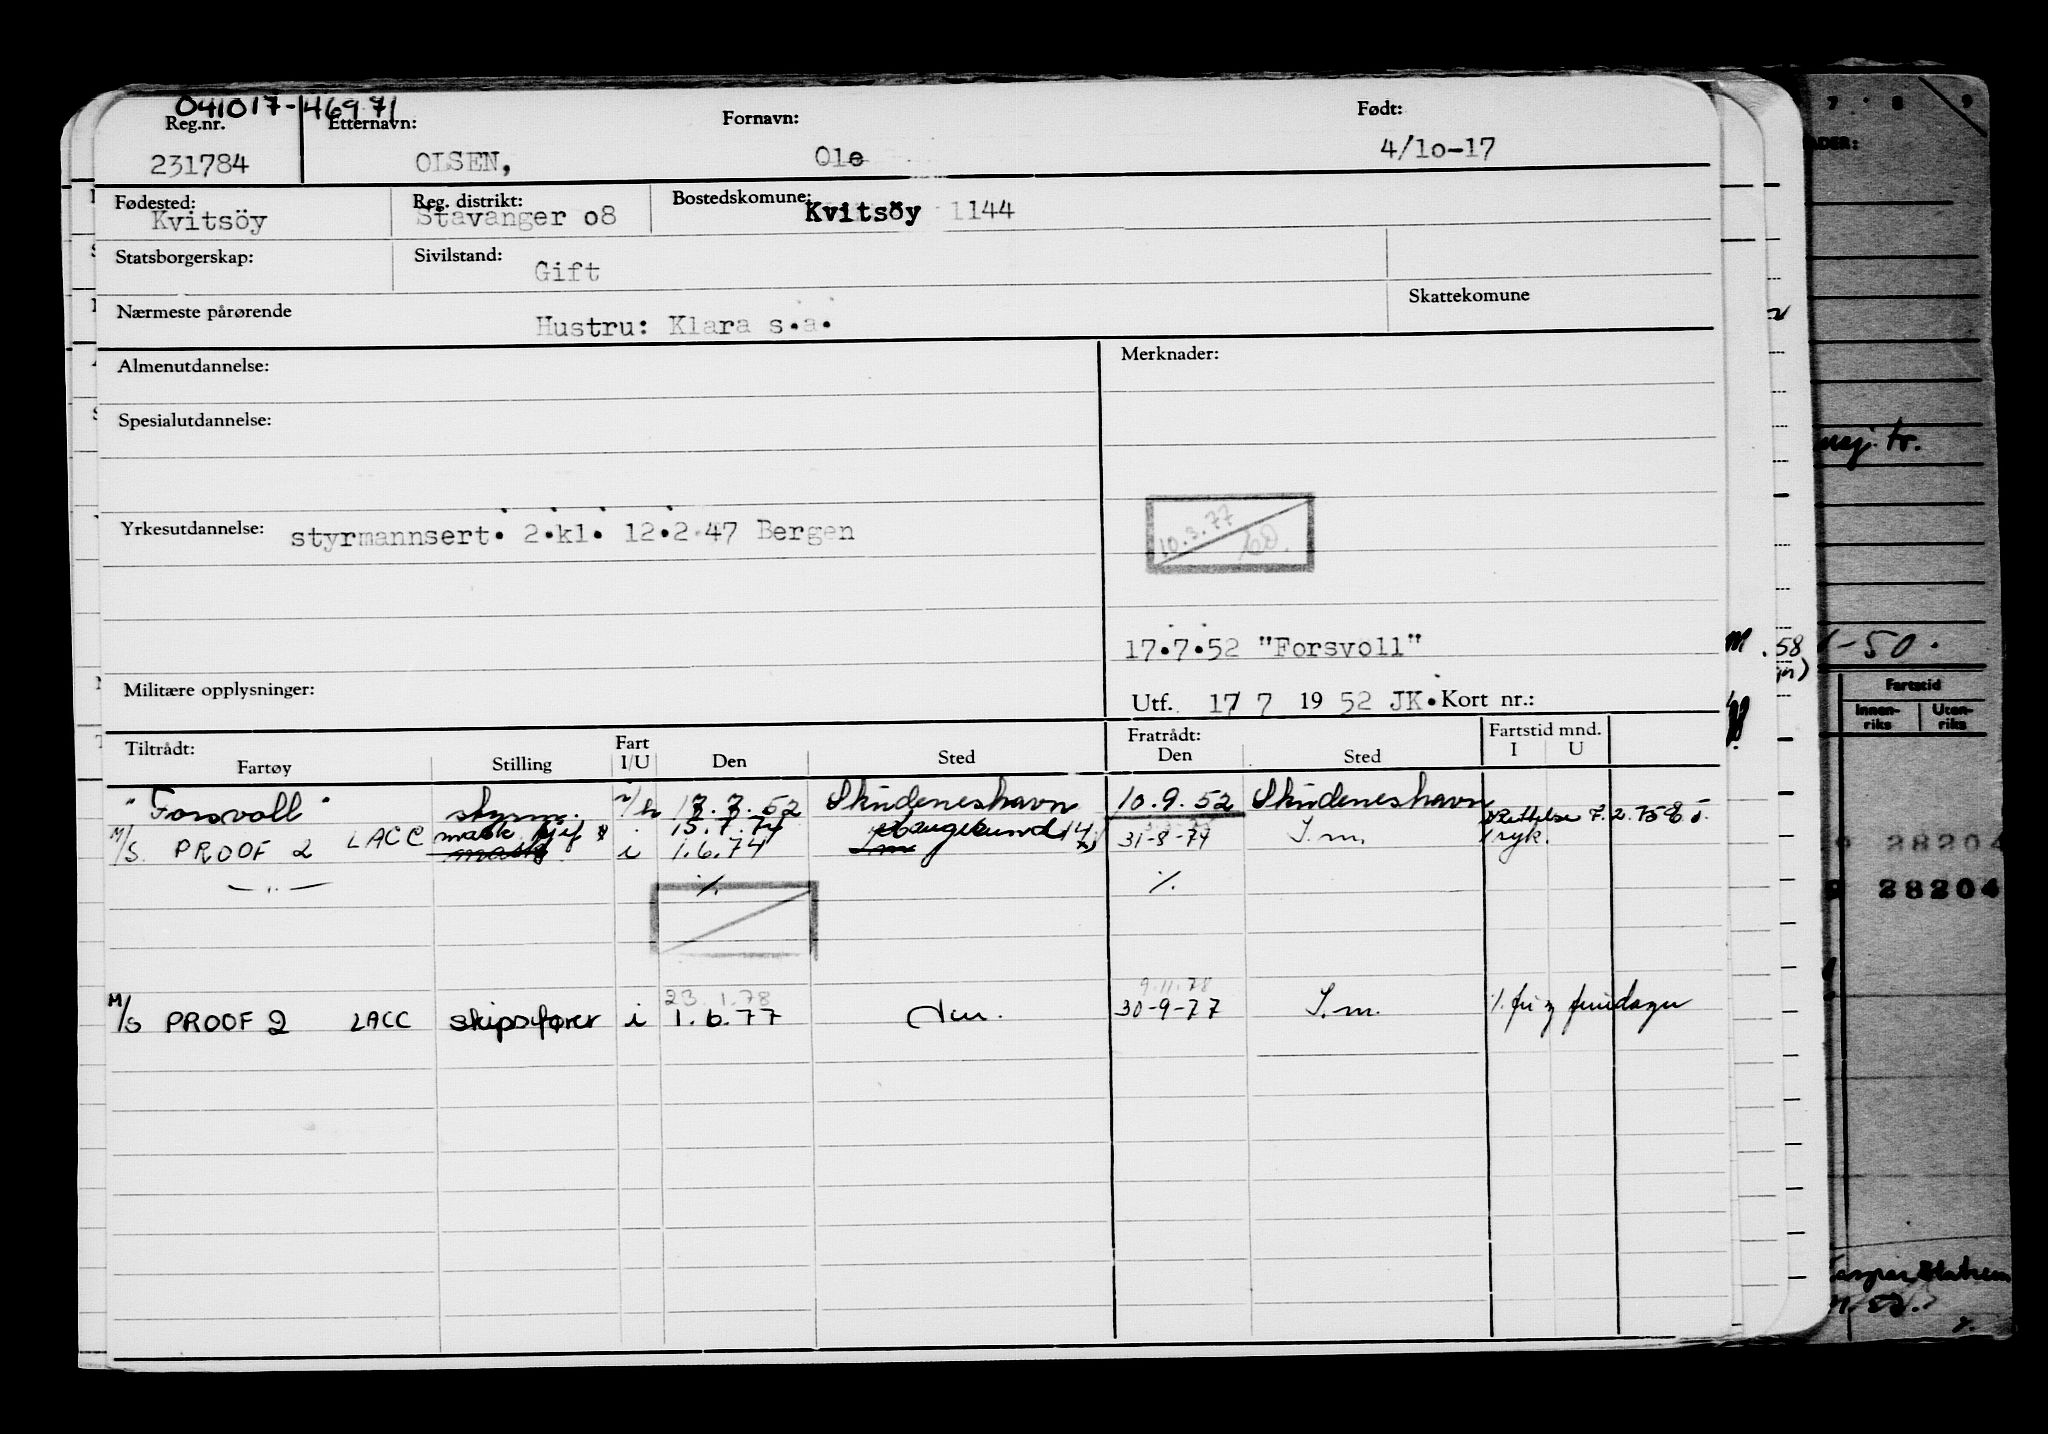 041017-46971
Reg.nr. Etternavn: Fornavn: Født:
231784 OLSEN, Ole 4/1o-17
Fødested: Reg. distrikt: Bostedskomune:
Kvitsöy Stavanger o8 Kvitsöy 1144
Statsborgerskap: Sivilstand:
Gift
Nærmeste pårørende Skattekomune
Hustru: Klara s.a.
Almenutdannelse: Merknader:
Spesialutdannelse:
10.3.77
Yrkesutdannelse: styrmannsert. 2.kl. 12.2.47 Bergen
17.7.52 "Forsvoll"
Militære opplysninger:
Utf. 17 7 1952 JK. Kort nr.:
Tiltrådt: Fart Fratrådt: Fartstid mnd.
Fartøy Stilling I/U Den Sted Den Sted I U
"Forsvoll" styrm. 17.7.52 Skudeneshavn 10.9.52 Skudeneshavn
mask. 15.7.74 Haugesund Rettelse 7.2.75
M/S PROOF 2 LACC i 1.6.74 31-8-74 S.m. 1 ryk.
—"— ./. ./.
23.1.78 9.11.78
M/S PROOF 2 LACC skipsfører i 1.6.77 30-9-77 S.m.
7 8 9
usj. tr.
.58
-50.
Fartstid
Innen-riks Uten-riks
28204
28204